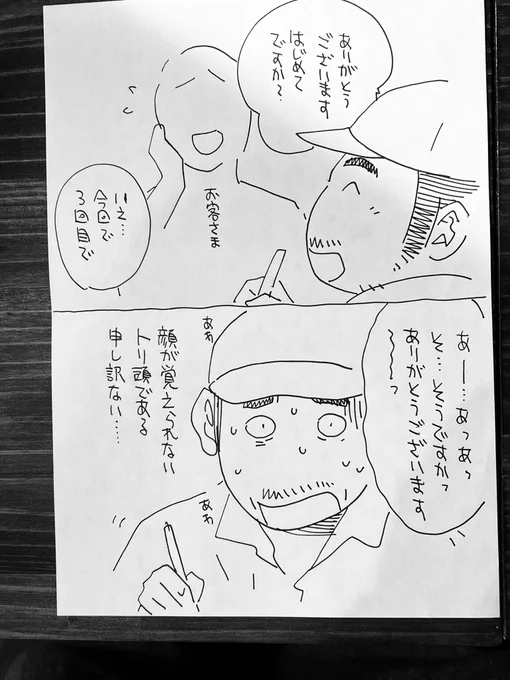 ありがとう
ございます
はじめて
ですか〜
お客さま
いえ…
今回で
3回目で
あー…あっあっ
そ…そうですかっ
ありがとうございます
る〜〜っ
あわ
顔が覚えられない
トリ頭である
申し訳ない……
あわ